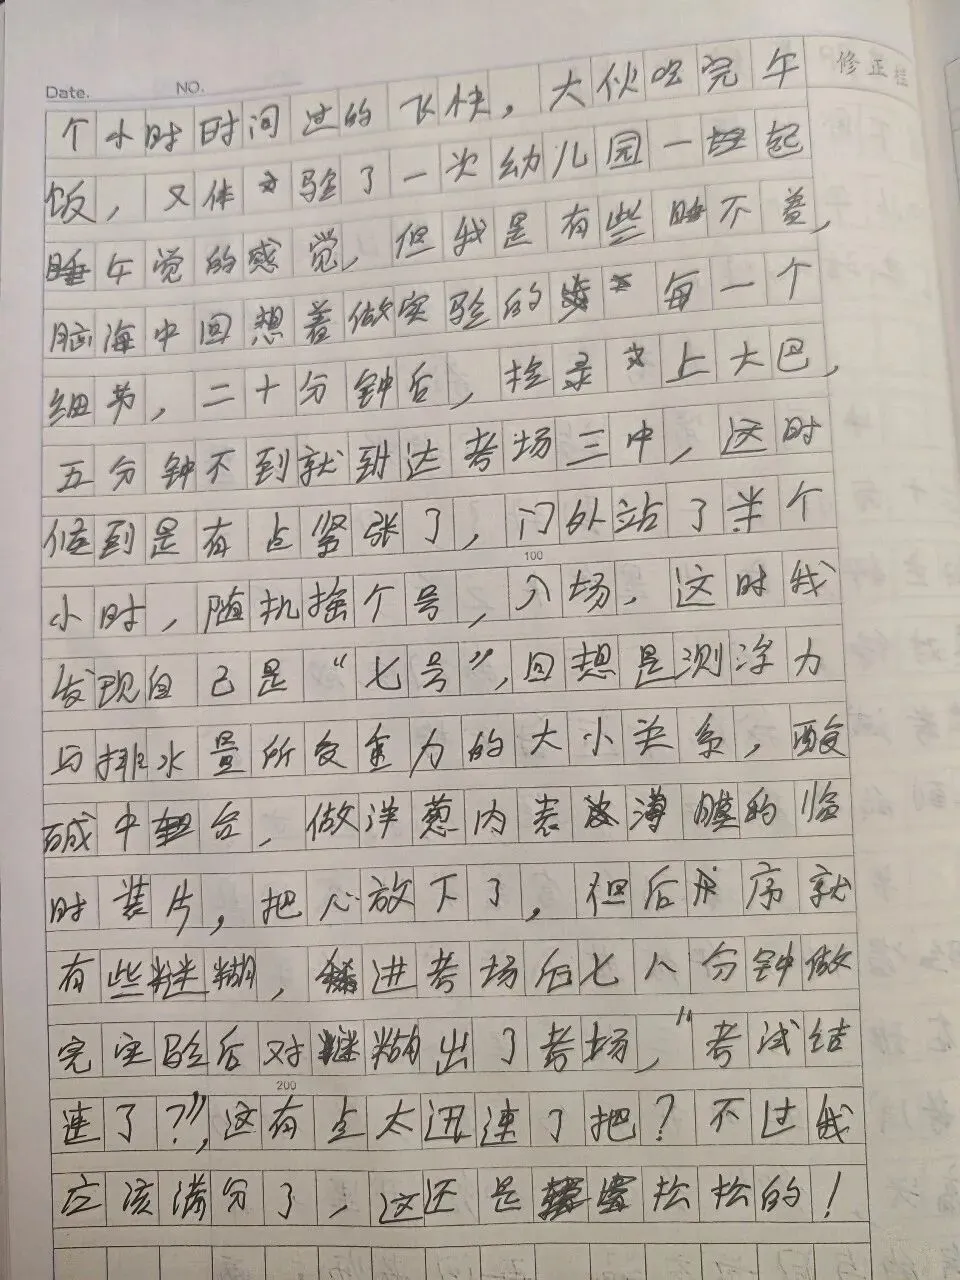 Date. NO.
修正栏
个小时时间过的飞快，大伙吃完午
饭，又体验了一次幼儿园一起
睡午觉的感觉，但我是有些睡不着，
脑海中回想着做实验的步 每一个
细节，二十分钟后，捡录 上大巴，
五分钟不到就到达考场三中，这时
候到是有点紧张了，门外站了半个
100
小时，随机摇个号，入场，这时我
发现自己是“七号”，回想是测浮力
与排水量所受重力的大小关系，酸
碱中和台，做洋葱内表皮薄膜的临
时装片，把心放下了，但后 序就
有些迷糊，进考场后七八分钟做
完实验后对迷糊出了考场，“考试结
200
速了？”，这有点太迅速了把？不过我
应该满分了，这还是 松松的！